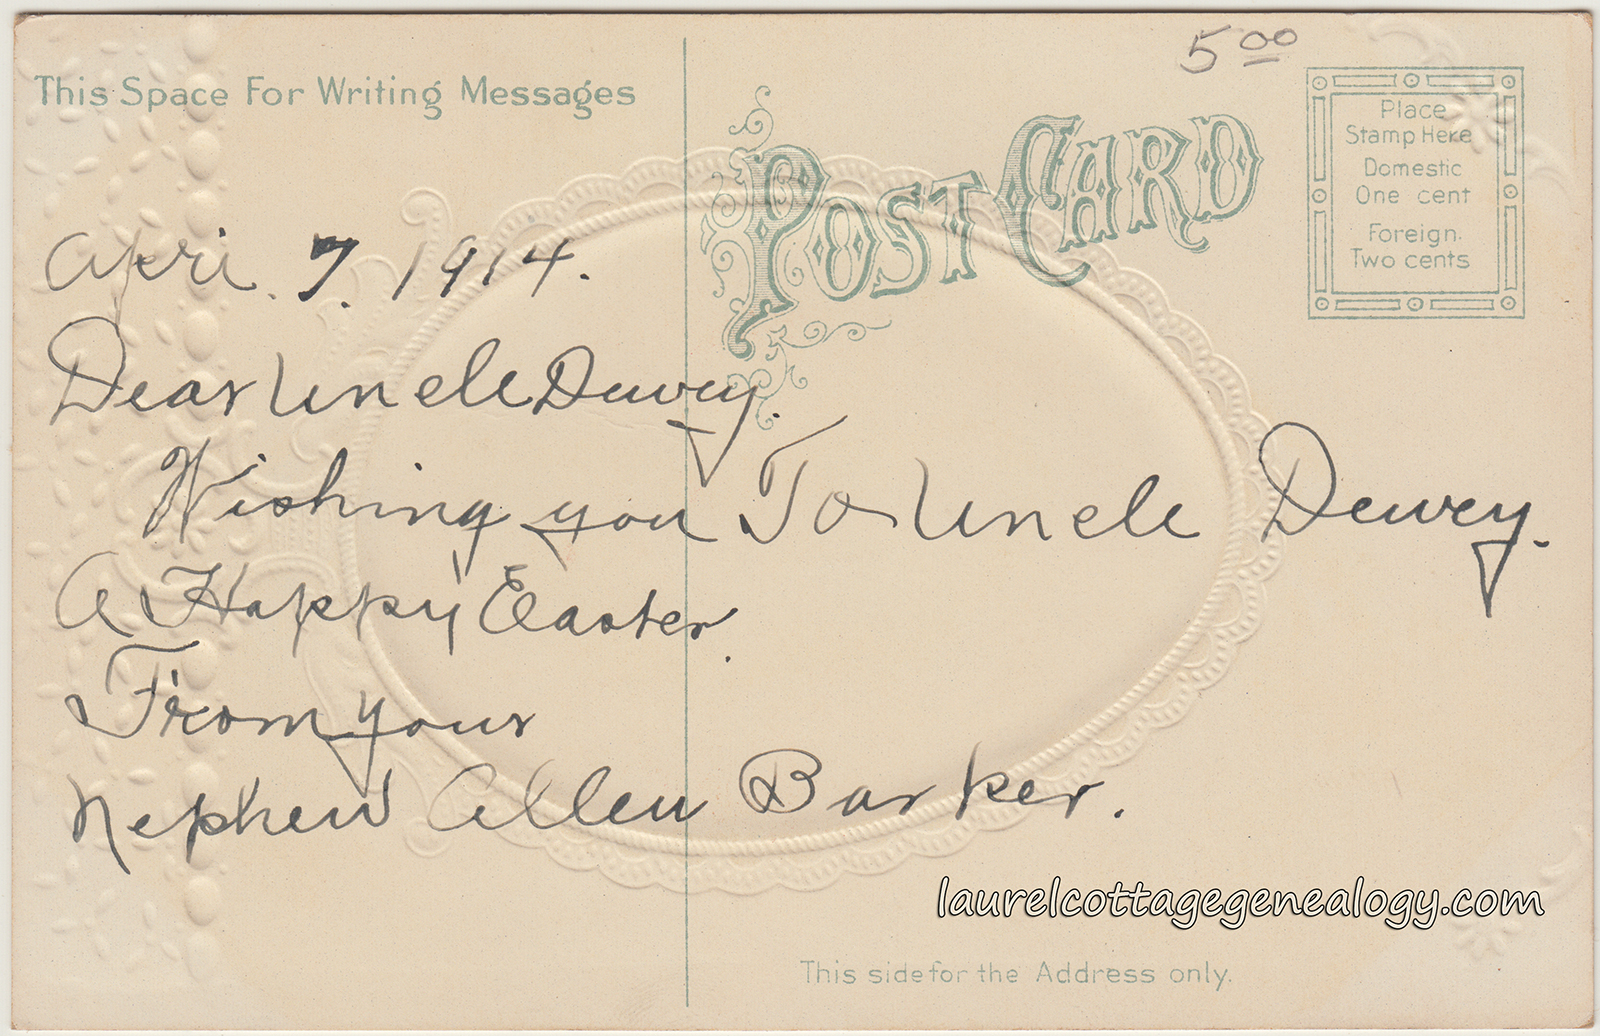 This Space For Writing Messages
5.00
POST CARD
Place
Stamp Here
Domestic
One cent
Foreign.
Two cents
Apri. 7. 1914.
Dear Uncle Dewey.
Wishing you
A Happy Easter.
From your
Nephew Allen Barker.
To Uncle Dewey.
laurelcottagegenealogy.com
This side for the Address only.